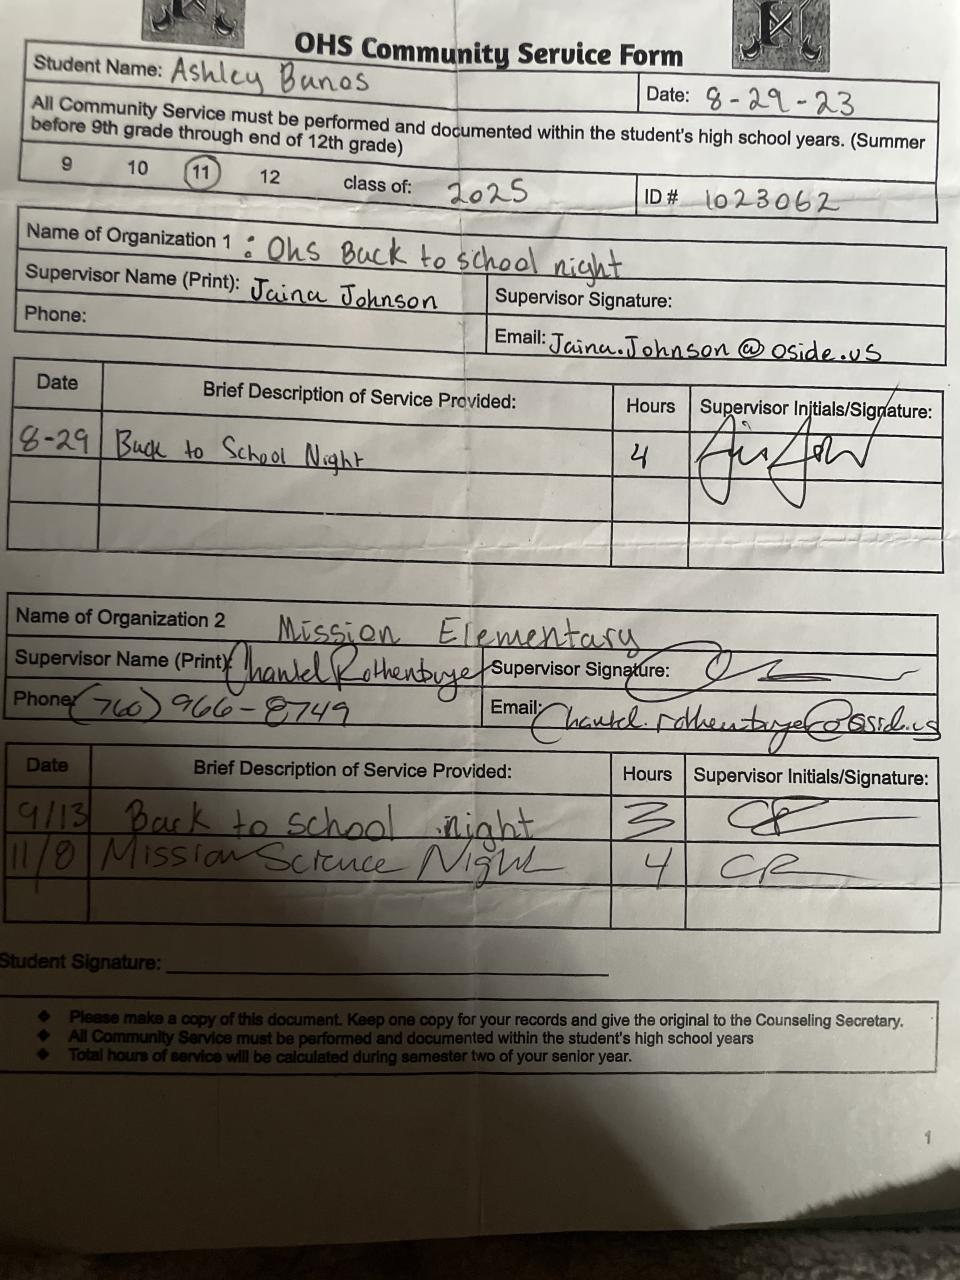 OHS Community Service Form
Student Name: Ashley Banos
Date: 8-29-23
All Community Service must be performed and documented within the student's high school years. (Summer
before 9th grade through end of 12th grade)
9 10 11 12 class of: 2025 ID # 1023062
Name of Organization 1 : Ohs Back to school night
Supervisor Name (Print): Jaina Johnson Supervisor Signature:
Phone: Email: Jaina.Johnson@oside.us
Date Brief Description of Service Provided: Hours Supervisor Initials/Signature:
8-29 Back to School Night 4
Name of Organization 2 Mission Elementary
Supervisor Name (Print): Chantel Rothenbuye Supervisor Signature:
Phone: (760) 966-8749 Email: Chantel.rothenbuye@oside.us
Date Brief Description of Service Provided: Hours Supervisor Initials/Signature:
9/13 Back to school night 3 CR
11/8 Mission Science Night 4 CR
Student Signature:
❖ Please make a copy of this document. Keep one copy for your records and give the original to the Counseling Secretary.
❖ All Community Service must be performed and documented within the student's high school years
❖ Total hours of service will be calculated during semester two of your senior year.
1